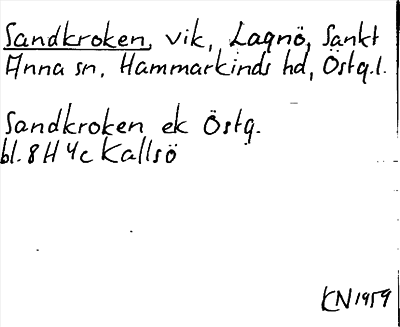 Sandkroken, vik, Lagnö, Sankt
Anna sn, Hammarkinds hd, Östg.l.
Sandkroken ek Östg.
bl. 8H4c Kallsö
KN 1959